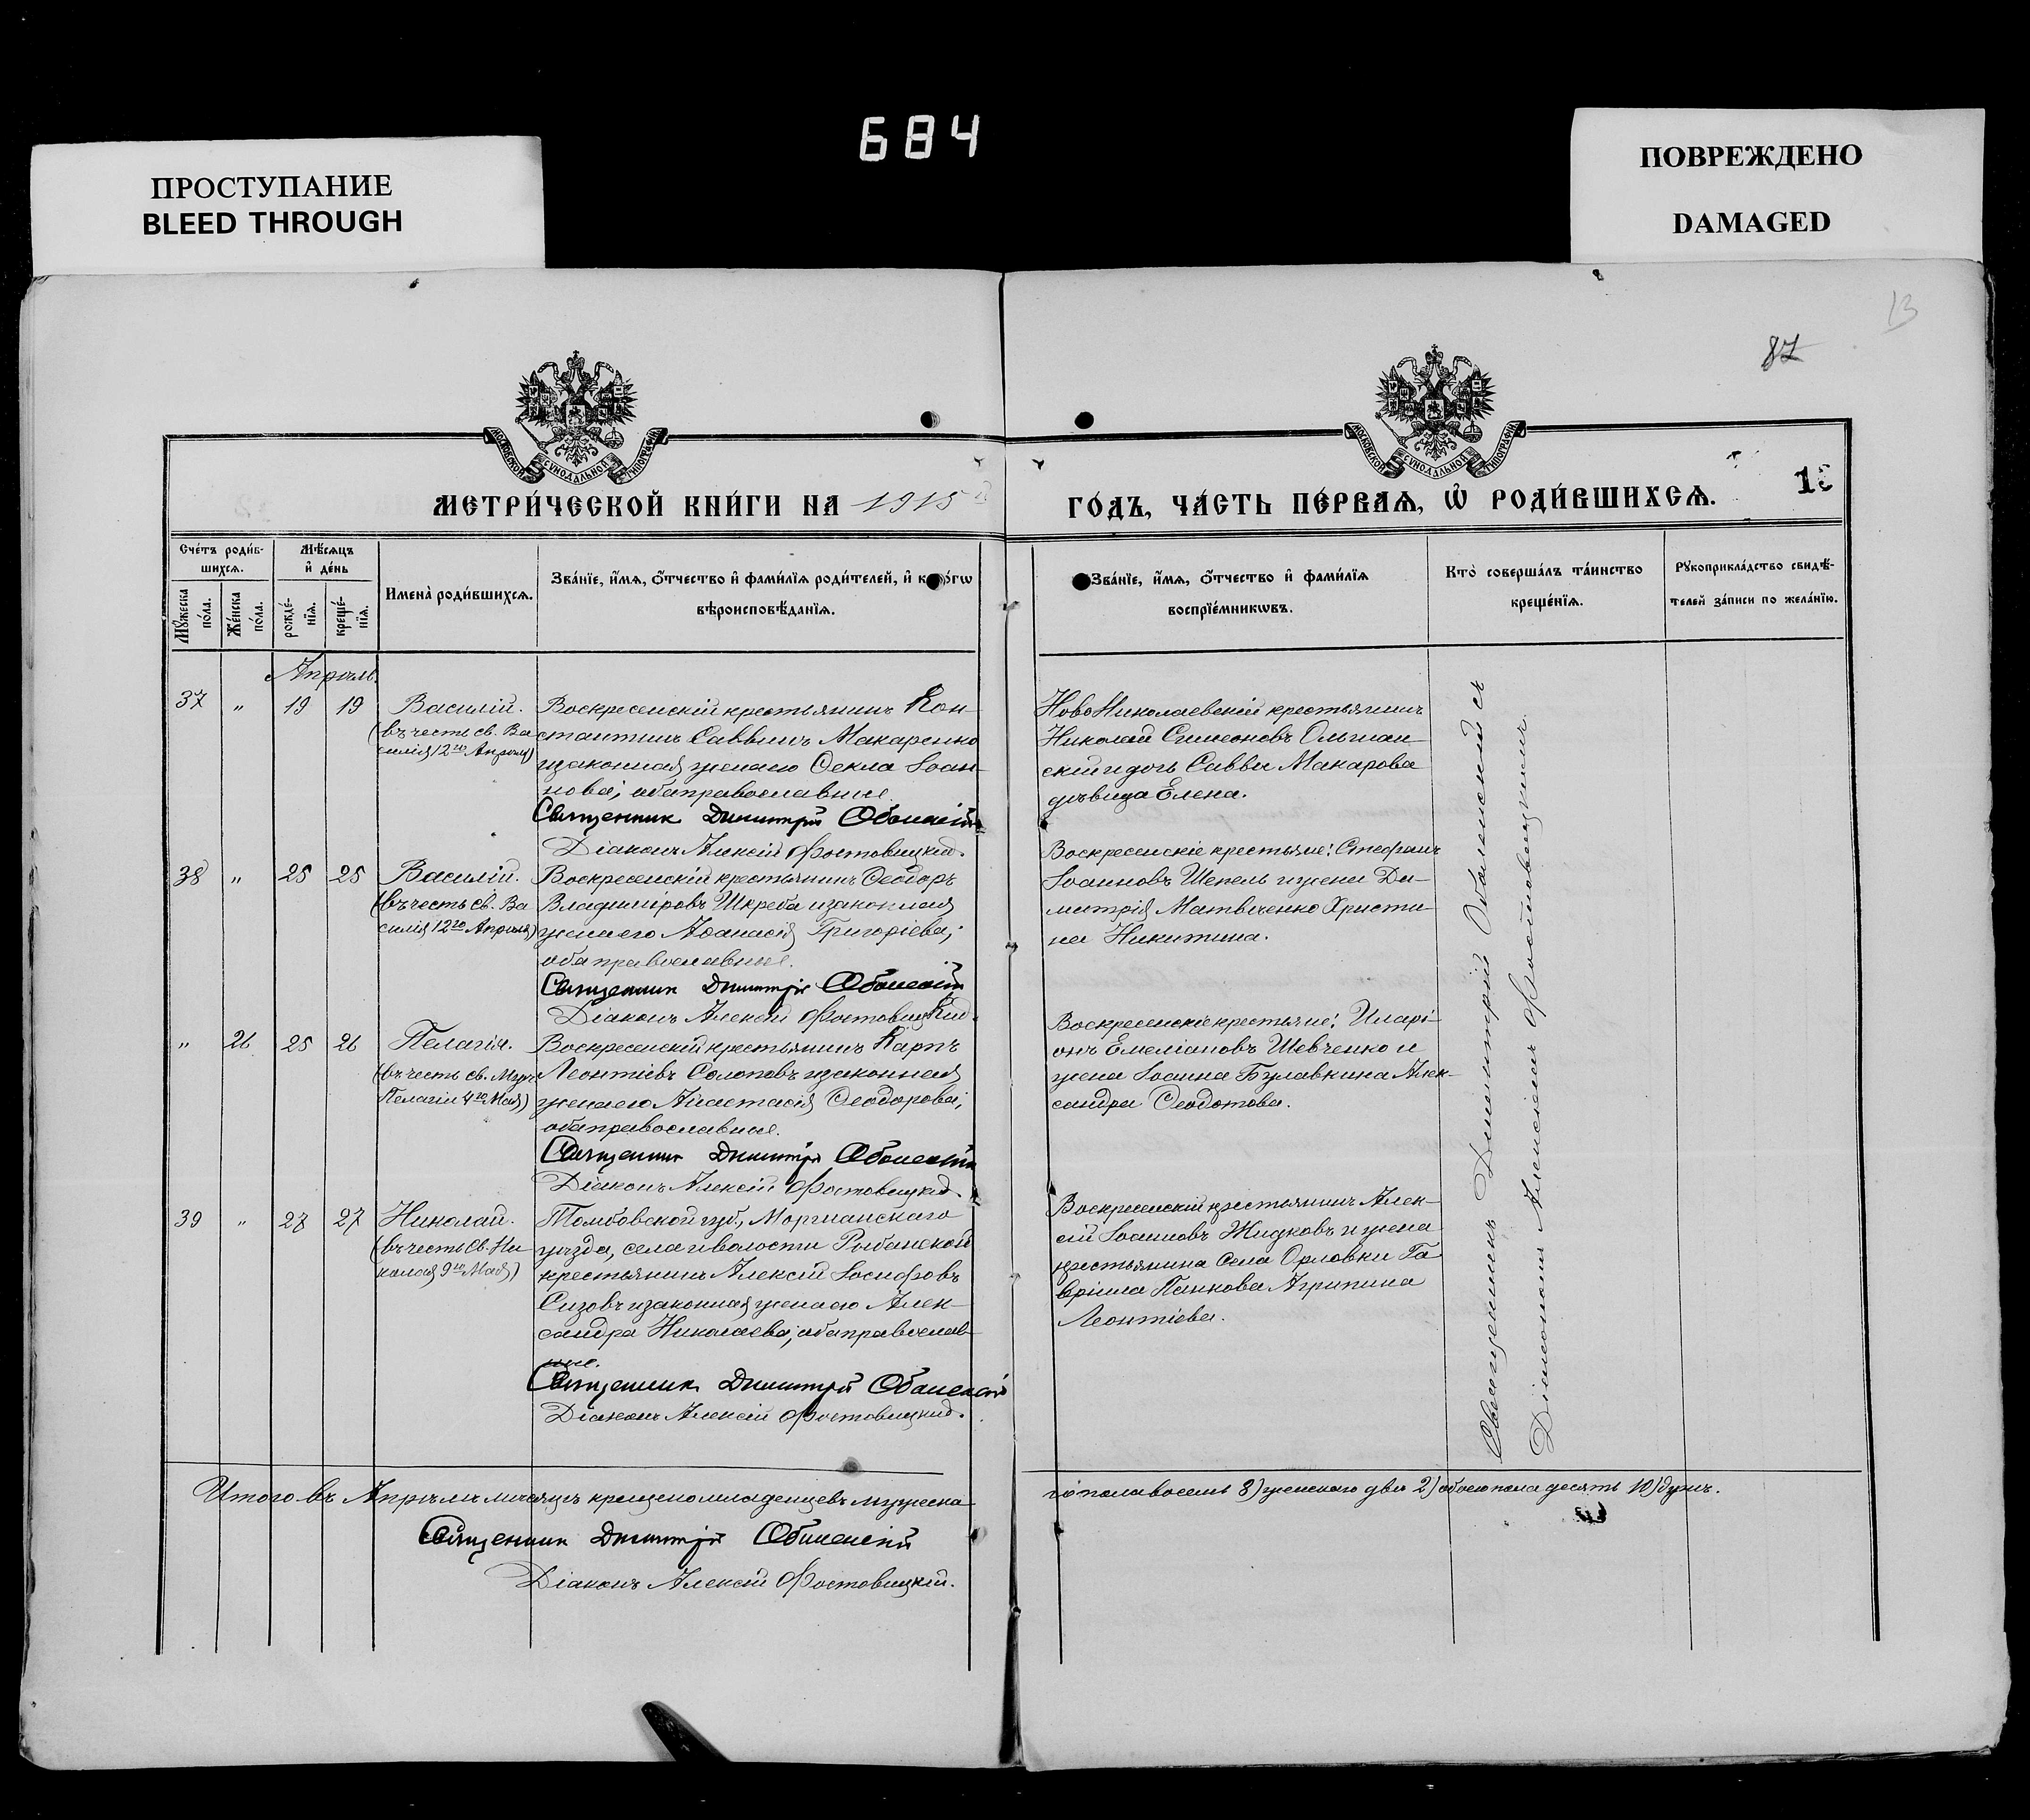 684
ПРОСТУПАНИЕ
BLEED THROUGH
ПОВРЕЖДЕНО
DAMAGED
13
87
МОСКОВСКОЙ СѴНОДАЛЬНОЙ ТИПОГРАФІИ
МОСКОВСКОЙ СѴНОДАЛЬНОЙ ТИПОГРАФІИ
МЕТРИ́ЧЕСКОЙ КНИ́ГИ НА 1915
ГО́ДЪ, ЧА́СТЬ ПЕ́РВАѦ, Ѡ҆ РОДИ́ВШИХСѦ.
Сче́тъ роди́в-
шихсѧ.
Мꙋ́жеска по́ла.
Же́нска по́ла.
Мѣ́сѧцъ
и҆ де́нь
рожде́-
нїѧ.
креще́-
нїѧ.
Имена̀ роди́вшихсѧ.
Зва́нїе, и҆́мѧ, ѻ҆́тчество и҆ фами́лїѧ роди́телей, и҆
вѣроисповѣ́данїѧ.
Зва́нїе, и҆́мѧ, ѻ҆́тчество и҆ фами́лїѧ
воспрїе́мникѡвъ.
Кто̀ соверша́лъ та́инство
креще́нїѧ.
Рꙋкоприкла́дство свидѣ́-
телей за́писи по жела́нїю.
Апрѣль.
37 " 19 19
Василій.
(въ честь св. Ва
силія 12го Апрѣля)
Воскресенскій крестьянинъ Кон-
стантинъ Саввинъ Макаренко
и законная жена его Ѳекла Іоан-
нова; оба православные.
Священник Димитрій Оболенскій
Діаконъ Алексій Фостовицкій.
Ново Николаевскій крестьянинъ
Николай Симеоновъ Ольшан-
скій и дочь Саввы Макарова
дѣвица Елена.
38 " 25 25
Василій.
(въ честь св. Ва
силія 12го Апрѣля)
Воскресенскій крестьянинъ Ѳеодоръ
Владиміровъ Шкреба и законная
жена его Аѳанасія Григоріева;
оба православные.
Священник Димитрій Оболенскій
Діаконъ Алексій Фостовицкій.
Воскресенскіе крестьяне: Стефанъ
Іоанновъ Шепель и жена Ди-
митрія Матвѣенко Христи-
на Никитина.
" 26 25 26
Пелагія.
(въ честь св. Муч.
Пелагіи 4го Мая)
Воскресенскій крестьянинъ Карпъ
Леонтіевъ Солоповъ и законная
жена его Анастасія Ѳеодорова;
оба православные.
Священник Димитрій Оболенскій
Діаконъ Алексій Фостовицкій.
Воскресенскіе крестьяне: Иларі-
онъ Емеліановъ Шевченко и
жена Іоанна Булавкина Алек-
сандра Ѳеодотова.
39 " 27 27
Николай.
(въ честь Св. Ни
колая 9го Мая)
Томбовской губ., Моршанскаго
уѣзда, села и волости Рыбанской
крестьянинъ Алексій Іосифовъ
Сизовъ и законная жена его Алек-
сандра Николаева; оба православ-
ные.
Священник Димитрій Оболенскій
Діаконъ Алексій Фостовицкій.
Воскресенскій крестьянинъ Алек-
сій Іоанновъ Жидковъ и жена
крестьянина села Орловки Га
вріила Панкова Агрипина
Леонтіева.
Священникъ Димитрій Оболенскій съ
Діакономъ Алексіемъ Фостовицкимъ.
Итого въ Апрѣлѣ мѣсяцѣ крещено младенцевъ мужеска-
го пола восемь 8) женскаго два 2) обоего пола десять 10) душъ.
Священник Димитрій Оболенскій
Діаконъ Алексій Фостовицкій.